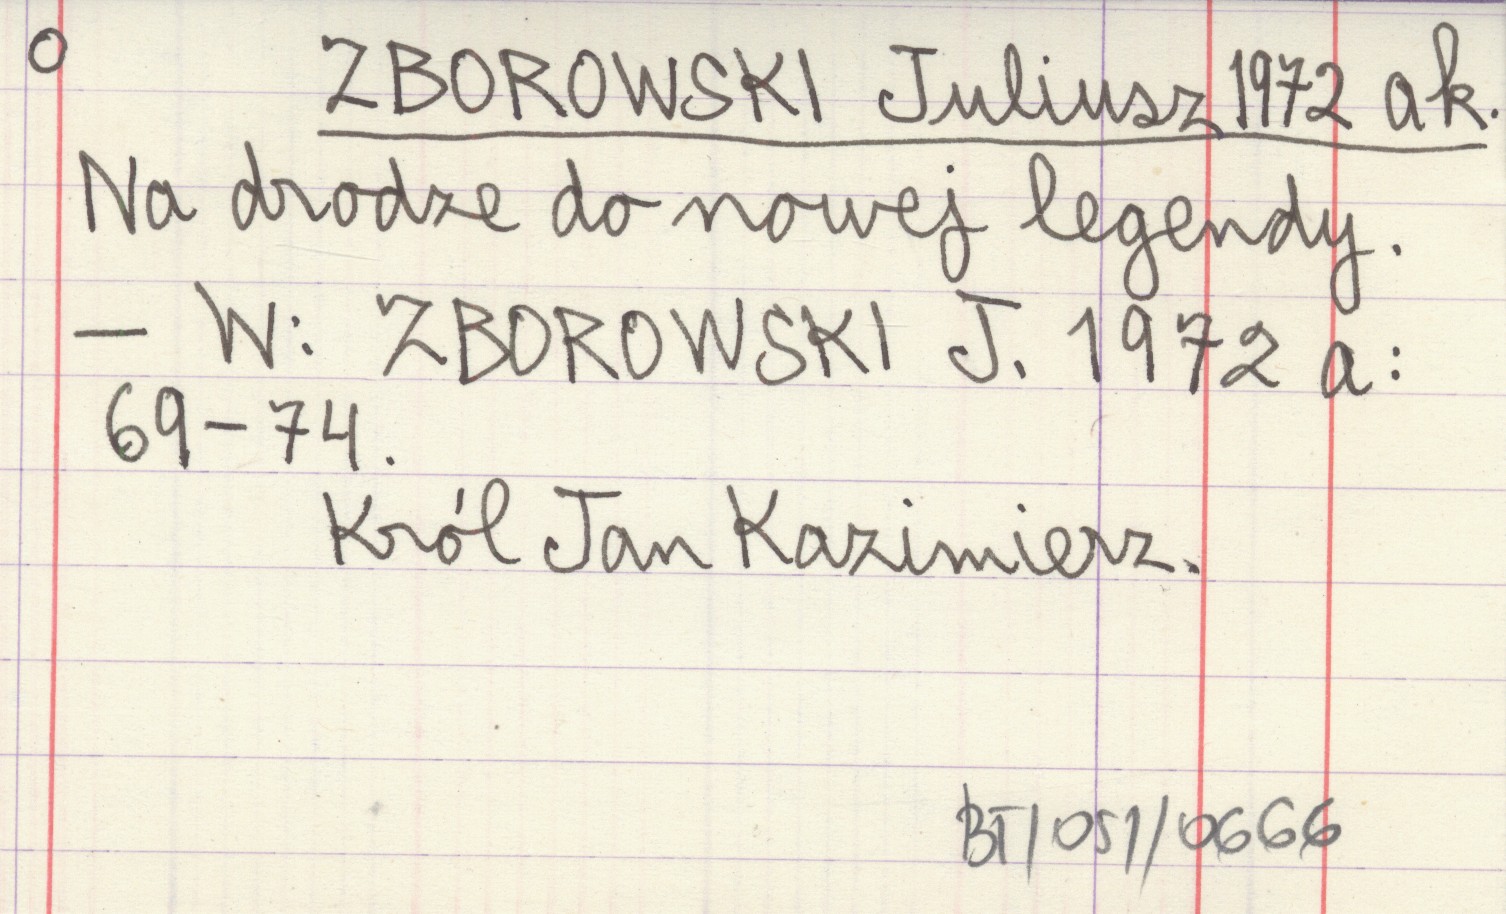 O
ZBOROWSKI Juliusz 1972 ak.
Na drodze do nowej legendy.
— W: ZBOROWSKI J. 1972 a:
69-74.
Król Jan Kazimierz.
BT/051/0666